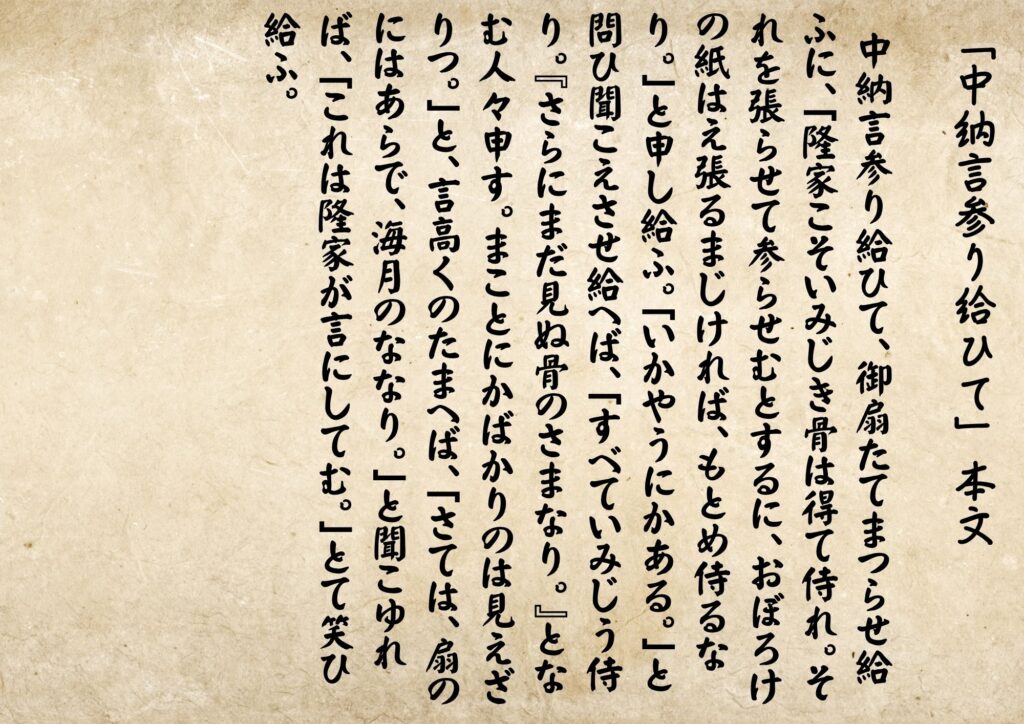 「中納言参り給ひて」 本文
中納言参り給ひて、御扇たてまつらせ給
ふに、「隆家こそいみじき骨は得て侍れ。そ
れを張らせて参らせむとするに、おぼろけ
の紙はえ張るまじければ、もとめ侍るな
り。」と申し給ふ。「いかやうにかある。」と
問ひ聞こえさせ給へば、「すべていみじう侍
り。『さらにまだ見ぬ骨のさまなり。』とな
む人々申す。まことにかばかりのは見えざ
りつ。」と、言高くのたまへば、「さては、扇の
にはあらで、海月のななり。」と聞こゆれ
ば、「これは隆家が言にしてむ。」とて笑ひ
給ふ。